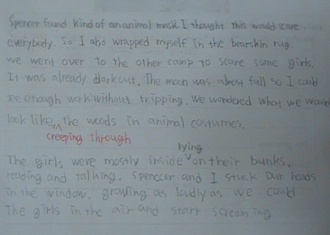 Spencer found kind of an animal mask I thought this would scare
everybody. So I also wrapped myself in the bearskin rug.
we went over to the other camp to scare some girls.
It was already dark out. The moon was almost full so I could
see enough walk without tripping. We wondered what we would
look like the woods in animal costumes.
creeping through
lying
The girls were mostly inside on their bunks,
reading and talking. Spencer and I stuck our heads
in the window, growling as loudly as we could
The girls in the air and start screaming